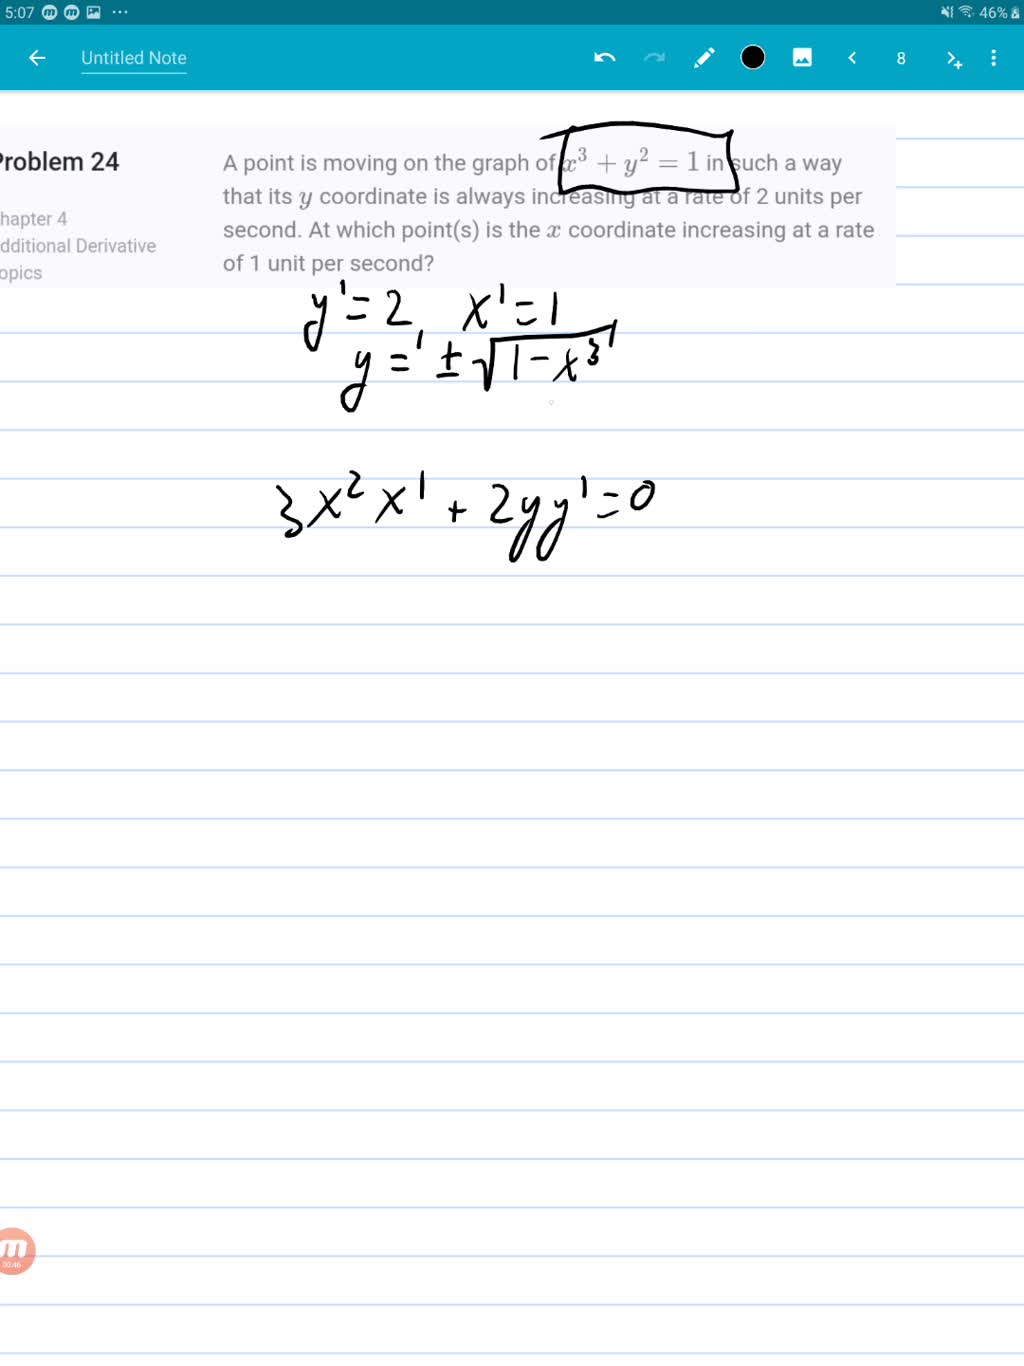 5:07 46%
Untitled Note 8
Problem 24
A point is moving on the graph of x³ + y² = 1 in such a way
that its y coordinate is always increasing at a rate of 2 units per
second. At which point(s) is the x coordinate increasing at a rate
of 1 unit per second?
hapter 4
dditional Derivative
opics
y' = 2, x' = 1
y = ' ± √1 - x³
3x²x' + 2yy' = 0
m
00:46